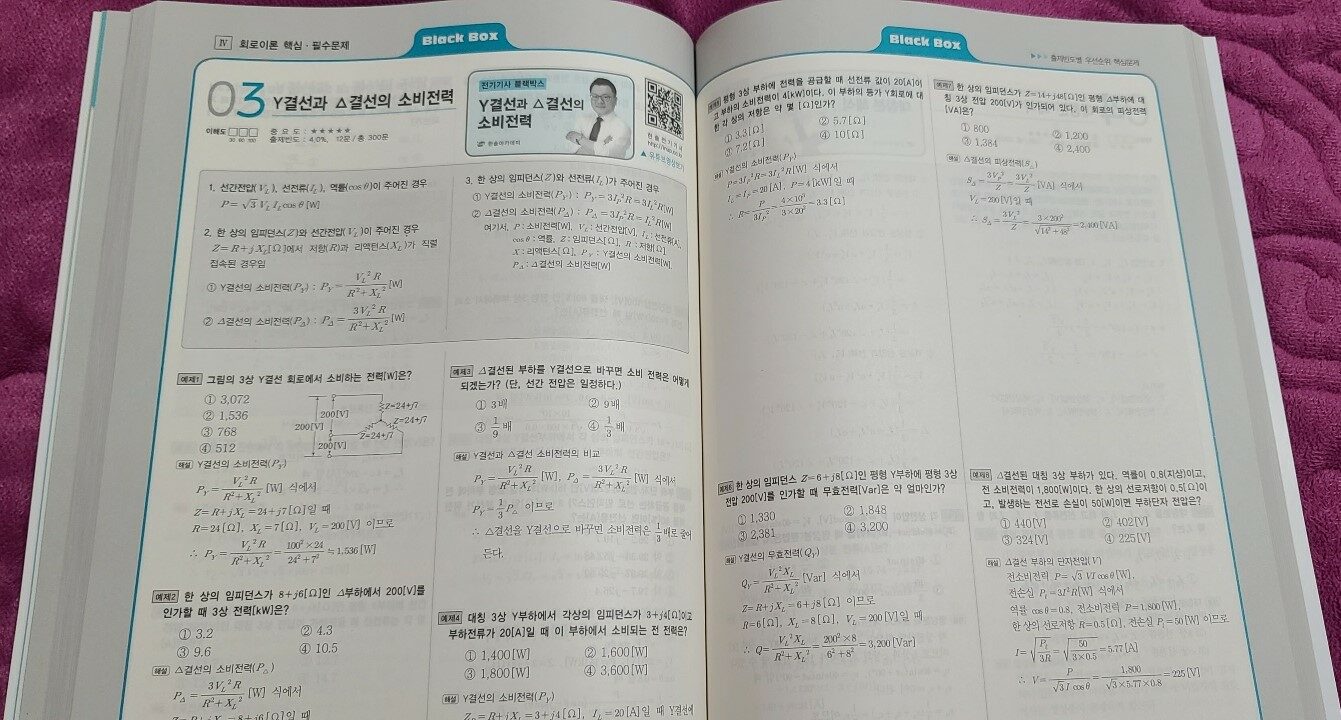 Ⅳ 회로이론 핵심·필수문제
Black Box
03 Y결선과 △결선의 소비전력
이해도 □□□
30 60 100
중 요 도 : ★★★★★
출제빈도 : 4.0%, 12문 / 총 300문
전기기사 블랙박스
Y결선과 △결선의
소비전력
한솔아카데미
▲ 유튜브영상보기
1. 선간전압(V_L), 선전류(I_L), 역률(cosθ)이 주어진 경우
P=√3 V_L I_L cosθ [W]
2. 한 상의 임피던스(Z)와 선간전압(V_L)이 주어진 경우
Z=R+jX_L[Ω]에서 저항(R)과 리액턴스(X_L)가 직렬
접속된 경우임
① Y결선의 소비전력(P_Y) : P_Y = V_L²R / (R²+X_L²) [W]
② △결선의 소비전력(P_Δ) : P_Δ = 3V_L²R / (R²+X_L²) [W]
3. 한 상의 임피던스(Z)와 선전류(I_L)가 주어진 경우
① Y결선의 소비전력(P_Y) : P_Y = 3I_P²R = 3I_L²R[W]
② △결선의 소비전력(P_Δ) : P_Δ = 3I_P²R = I_L²R[W]
여기서, P : 소비전력[W], V_L : 선간전압[V], I_L : 선전류[A],
cosθ : 역률, Z : 임피던스[Ω], R : 저항[Ω],
X : 리액턴스[Ω], P_Y : Y결선의 소비전력[W],
P_Δ : △결선의 소비전력[W]
예제1 그림의 3상 Y결선 회로에서 소비하는 전력[W]은?
① 3,072
② 1,536
③ 768
④ 512
200[V]
200[V]
200[V]
Z=24+j7
Z=24+j7
Z=24+j7
해설 Y결선의 소비전력(P_Y)
P_Y = V_L²R / (R²+X_L²) [W] 식에서
Z=R+jX_L=24+j7[Ω]일 때
R=24[Ω], X_L=7[Ω], V_L=200[V] 이므로
∴ P_Y = V_L²R / (R²+X_L²) = 100²×24 / (24²+7²) ≒ 1,536[W]
예제2 한 상의 임피던스가 8+j6[Ω]인 △부하에서 200[V]를
인가할 때 3상 전력[kW]은?
① 3.2 ② 4.3
③ 9.6 ④ 10.5
해설 △결선의 소비전력(P_Δ)
P_Δ = 3V_L²R / (R²+X_L²) [W] 식에서
Z=R+jX_L=8+j6[Ω]일 때
예제3 △결선된 부하를 Y결선으로 바꾸면 소비 전력은 어떻게
되겠는가? (단, 선간 전압은 일정하다.)
① 3배 ② 9배
③ 1/9배 ④ 1/3배
해설 Y결선과 △결선 소비전력의 비교
P_Y = V_L²R / (R²+X_L²) [W], P_Δ = 3V_L²R / (R²+X_L²) [W] 식에서
P_Y = 1/3 P_Δ 이므로
∴ △결선을 Y결선으로 바꾸면 소비전력은 1/3배로 줄어
든다.
예제4 대칭 3상 Y부하에서 각상의 임피던스가 3+j4[Ω]이고
부하전류가 20[A]일 때 이 부하에서 소비되는 전 전력은?
① 1,400[W] ② 1,600[W]
③ 1,800[W] ④ 3,600[W]
해설 Y결선의 소비전력(P_Y)
Z_P=R+jX_L=3+j4[Ω], I_L=20[A]일 때 Y결선에
Black Box
▶▶▶ 출제빈도별 우선순위 핵심문제
평형 3상 부하에 전력을 공급할 때 선전류 값이 20[A]이
고 부하의 소비전력이 4[kW]이다. 이 부하의 등가 Y회로에 대
한 각 상의 저항은 약 몇 [Ω]인가?
① 3.3[Ω] ② 5.7[Ω]
③ 7.2[Ω] ④ 10[Ω]
해설 Y결선의 소비전력(P_Y)
P=3I_P²R=3I_L²R[W] 식에서
I_L=I_P=20[A], P=4[kW]일 때
∴ R = P / 3I_P² = 4×10³ / (3×20²) = 3.3[Ω]
예제6 한 상의 임피던스 Z=6+j8[Ω]인 평형 Y부하에 평형 3상
전압 200[V]를 인가할 때 무효전력[Var]은 약 얼마인가?
① 1,330 ② 1,848
③ 2,381 ④ 3,200
해설 Y결선의 무효전력(Q_Y)
Q_Y = V_L²X_L / (R²+X_L²) [Var] 식에서
Z=R+jX_L=6+j8[Ω] 이므로
R=6[Ω], X_L=8[Ω], V_L=200[V]일 때
∴ Q = V_L²X_L / (R²+X_L²) = 200²×8 / (6²+8²) = 3,200[Var]
예제7 한 상의 임피던스가 Z=14+j48[Ω]인 평형 △부하에 대
칭 3상 전압 200[V]가 인가되어 있다. 이 회로의 피상전력
[VA]은?
① 800 ② 1,200
③ 1,384 ④ 2,400
해설 △결선의 피상전력(S_Δ)
S_Δ = 3V_P²/Z = 3V_L²/Z [VA] 식에서
V_L=200[V]일 때
∴ S_Δ = 3V_L²/Z = 3×200² / √(14²+48²) = 2,400[VA]
예제8 △결선된 대칭 3상 부하가 있다. 역률이 0.8(지상)이고,
전 소비전력이 1,800[W]이다. 한 상의 선로저항이 0.5[Ω]이
고, 발생하는 전선로 손실이 50[W]이면 부하단자 전압은?
① 440[V] ② 402[V]
③ 324[V] ④ 225[V]
해설 △결선 부하의 단자전압(V)
전소비전력 P=√3 VI cosθ[W],
전손실 P_l=3I²R[W] 식에서
역률 cosθ=0.8, 전소비전력 P=1,800[W],
한 상의 선로저항 R=0.5[Ω], 전손실 P_l=50[W] 이므로
I = √(P_l / 3R) = √(50 / (3×0.5)) = 5.77[A]
∴ V = P / (√3 I cosθ) = 1,800 / (√3×5.77×0.8) = 225[V]